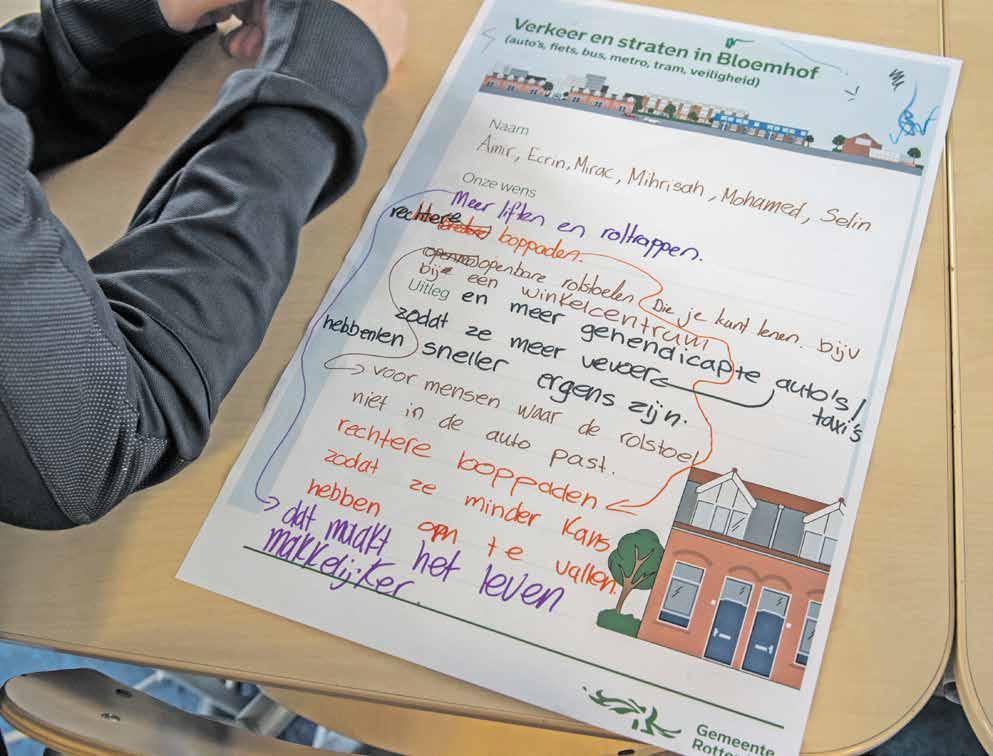 Verkeer en straten in Bloemhof
(auto's, fiets, bus, metro, tram, veiligheid)
Naam
Amir, Ecrin, Mirac, Mihrisah, Mohamed, Selin
Onze wens
Meer liften en roltrappen.
rechtere loopaden.
openbare rolstoelen. Die je kunt lenen. bijv
bij een winkelcentrum
Uitleg
en meer gehendicapte auto's/
taxi's
zodat ze meer vevoer
hebbenlen sneller ergens zijn.
voor mensen waar de rolstoel
niet in de auto past.
rechtere looppaden
zodat ze minder kans
hebben om te vallen.
dat maakt het leven
makkelijker.
Gemeente
Rotte